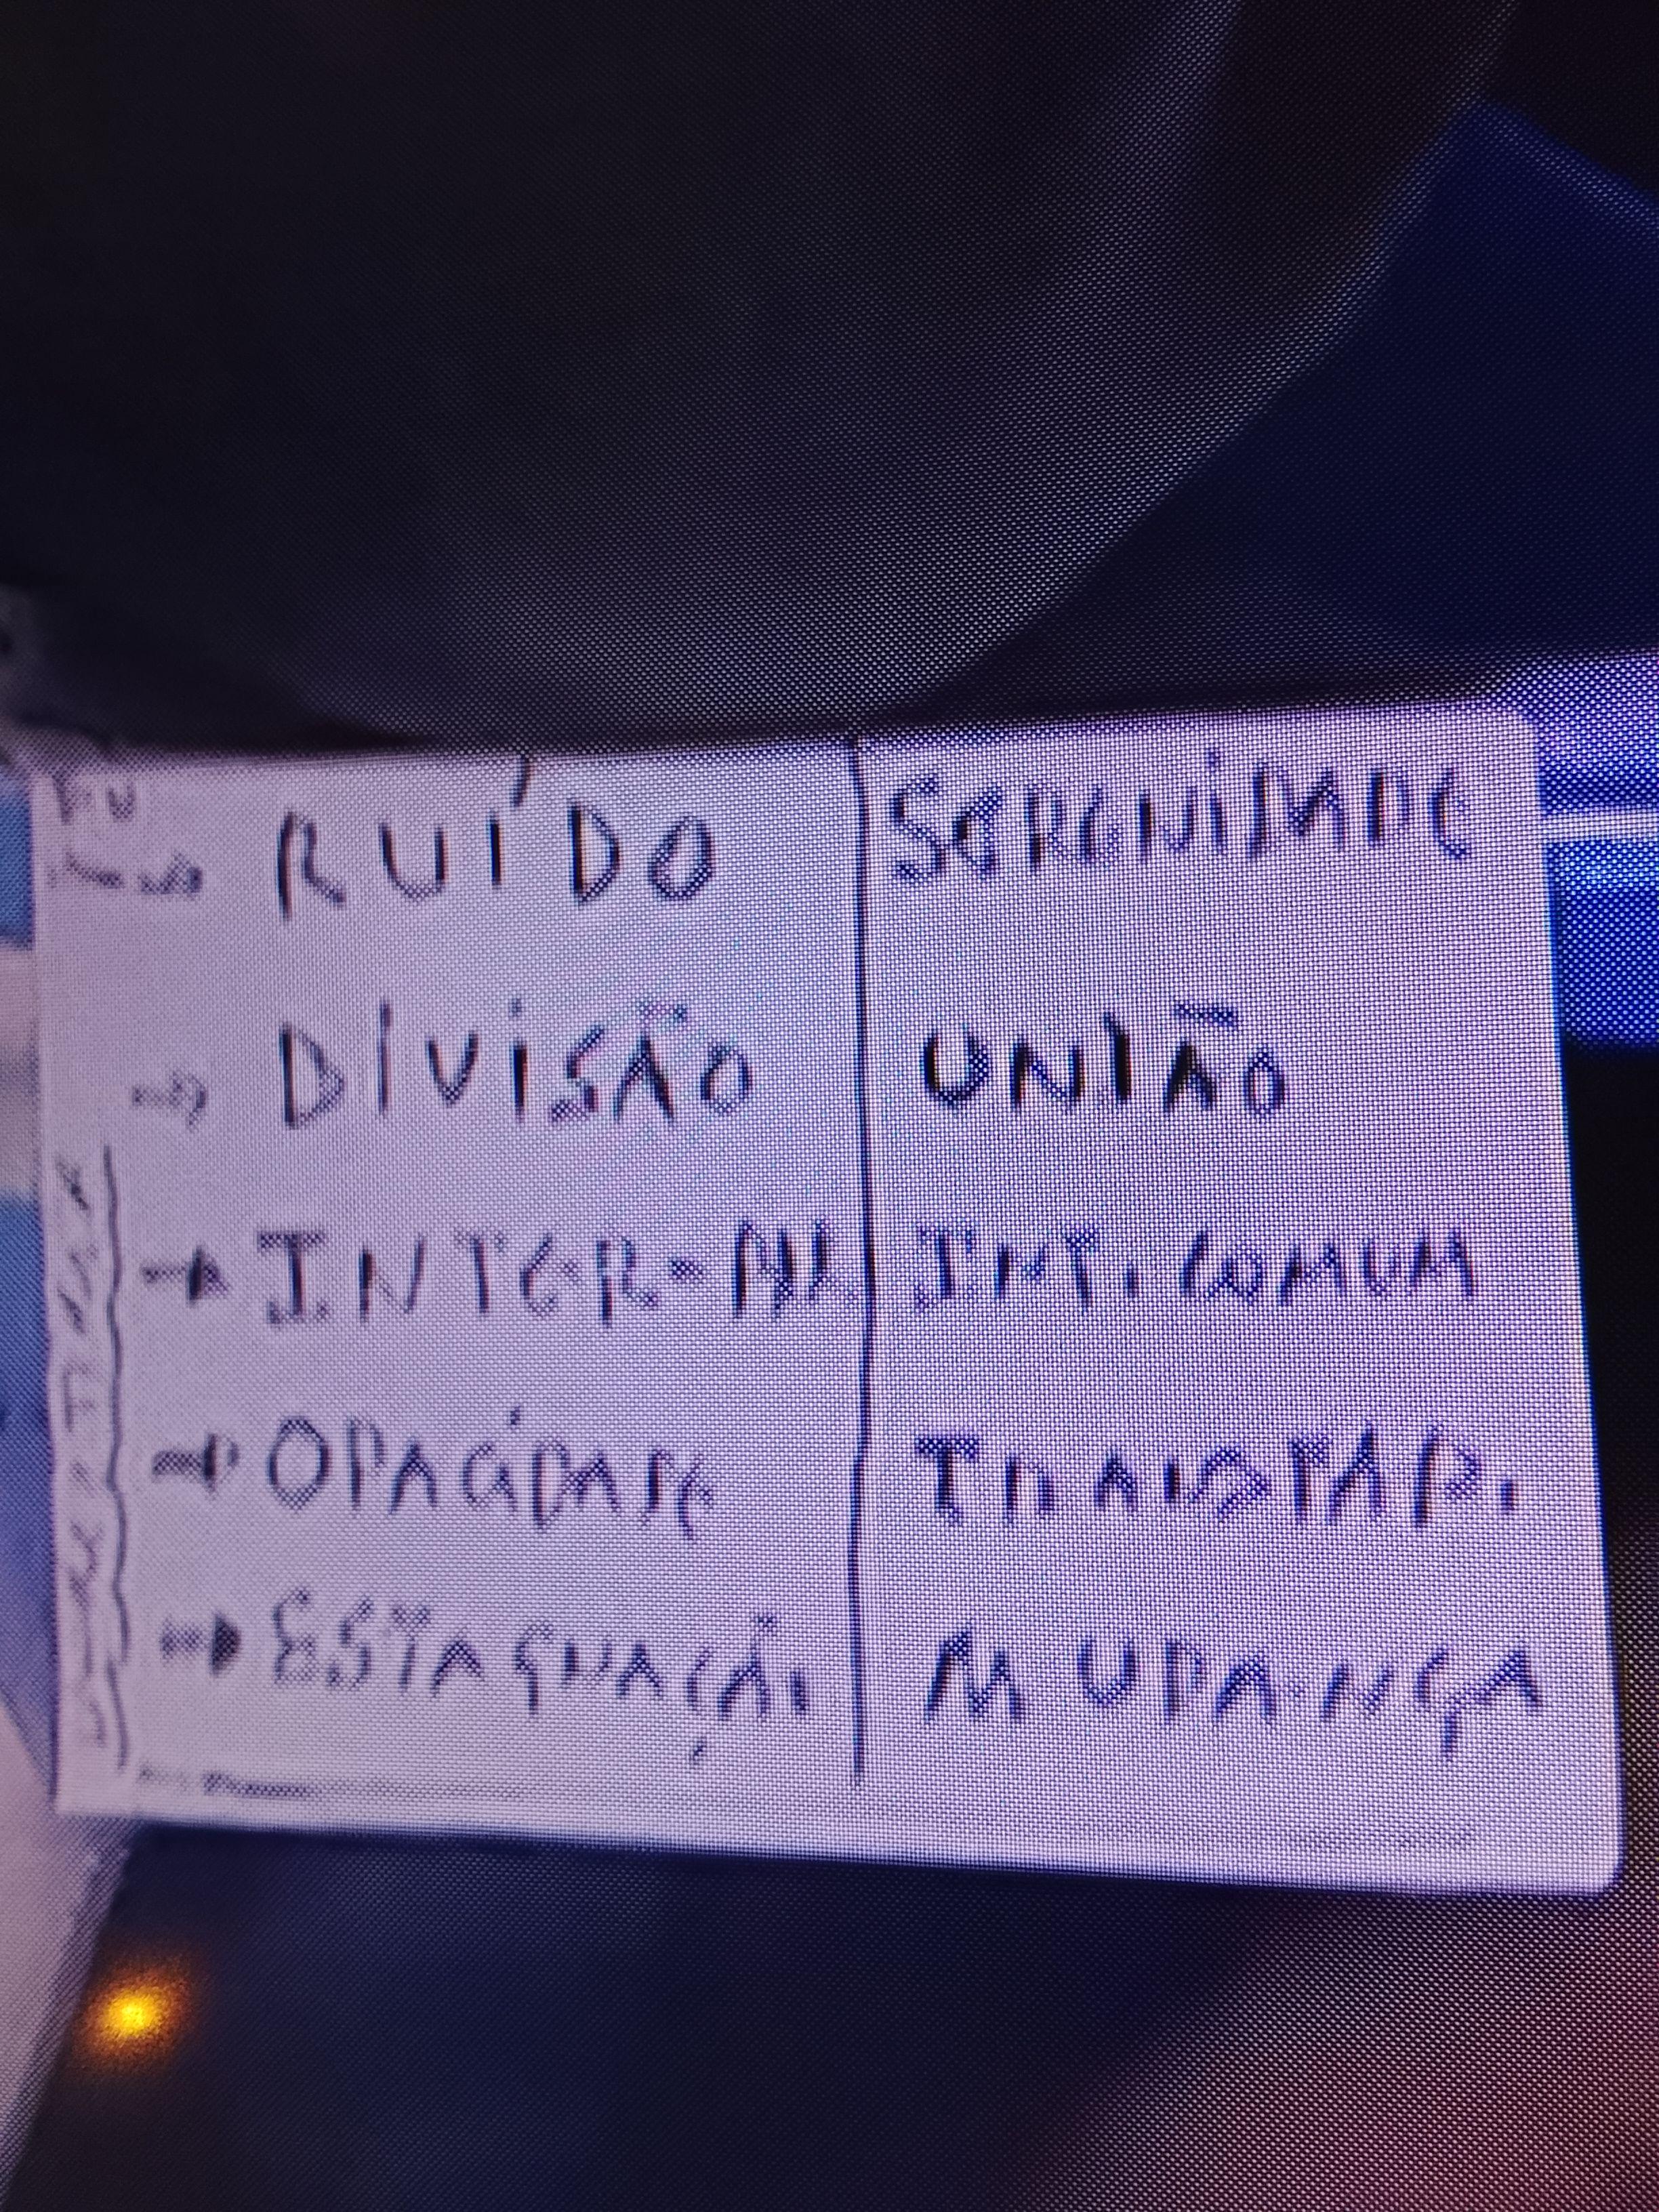 → RUÍDO | SERENIDADE
→ DIVISÃO | UNIÃO
→ INTER- | INT. COMUM
→ OPACIDADE | TRANSPAR.
→ ESTAGNAÇÃO | MUDANÇA